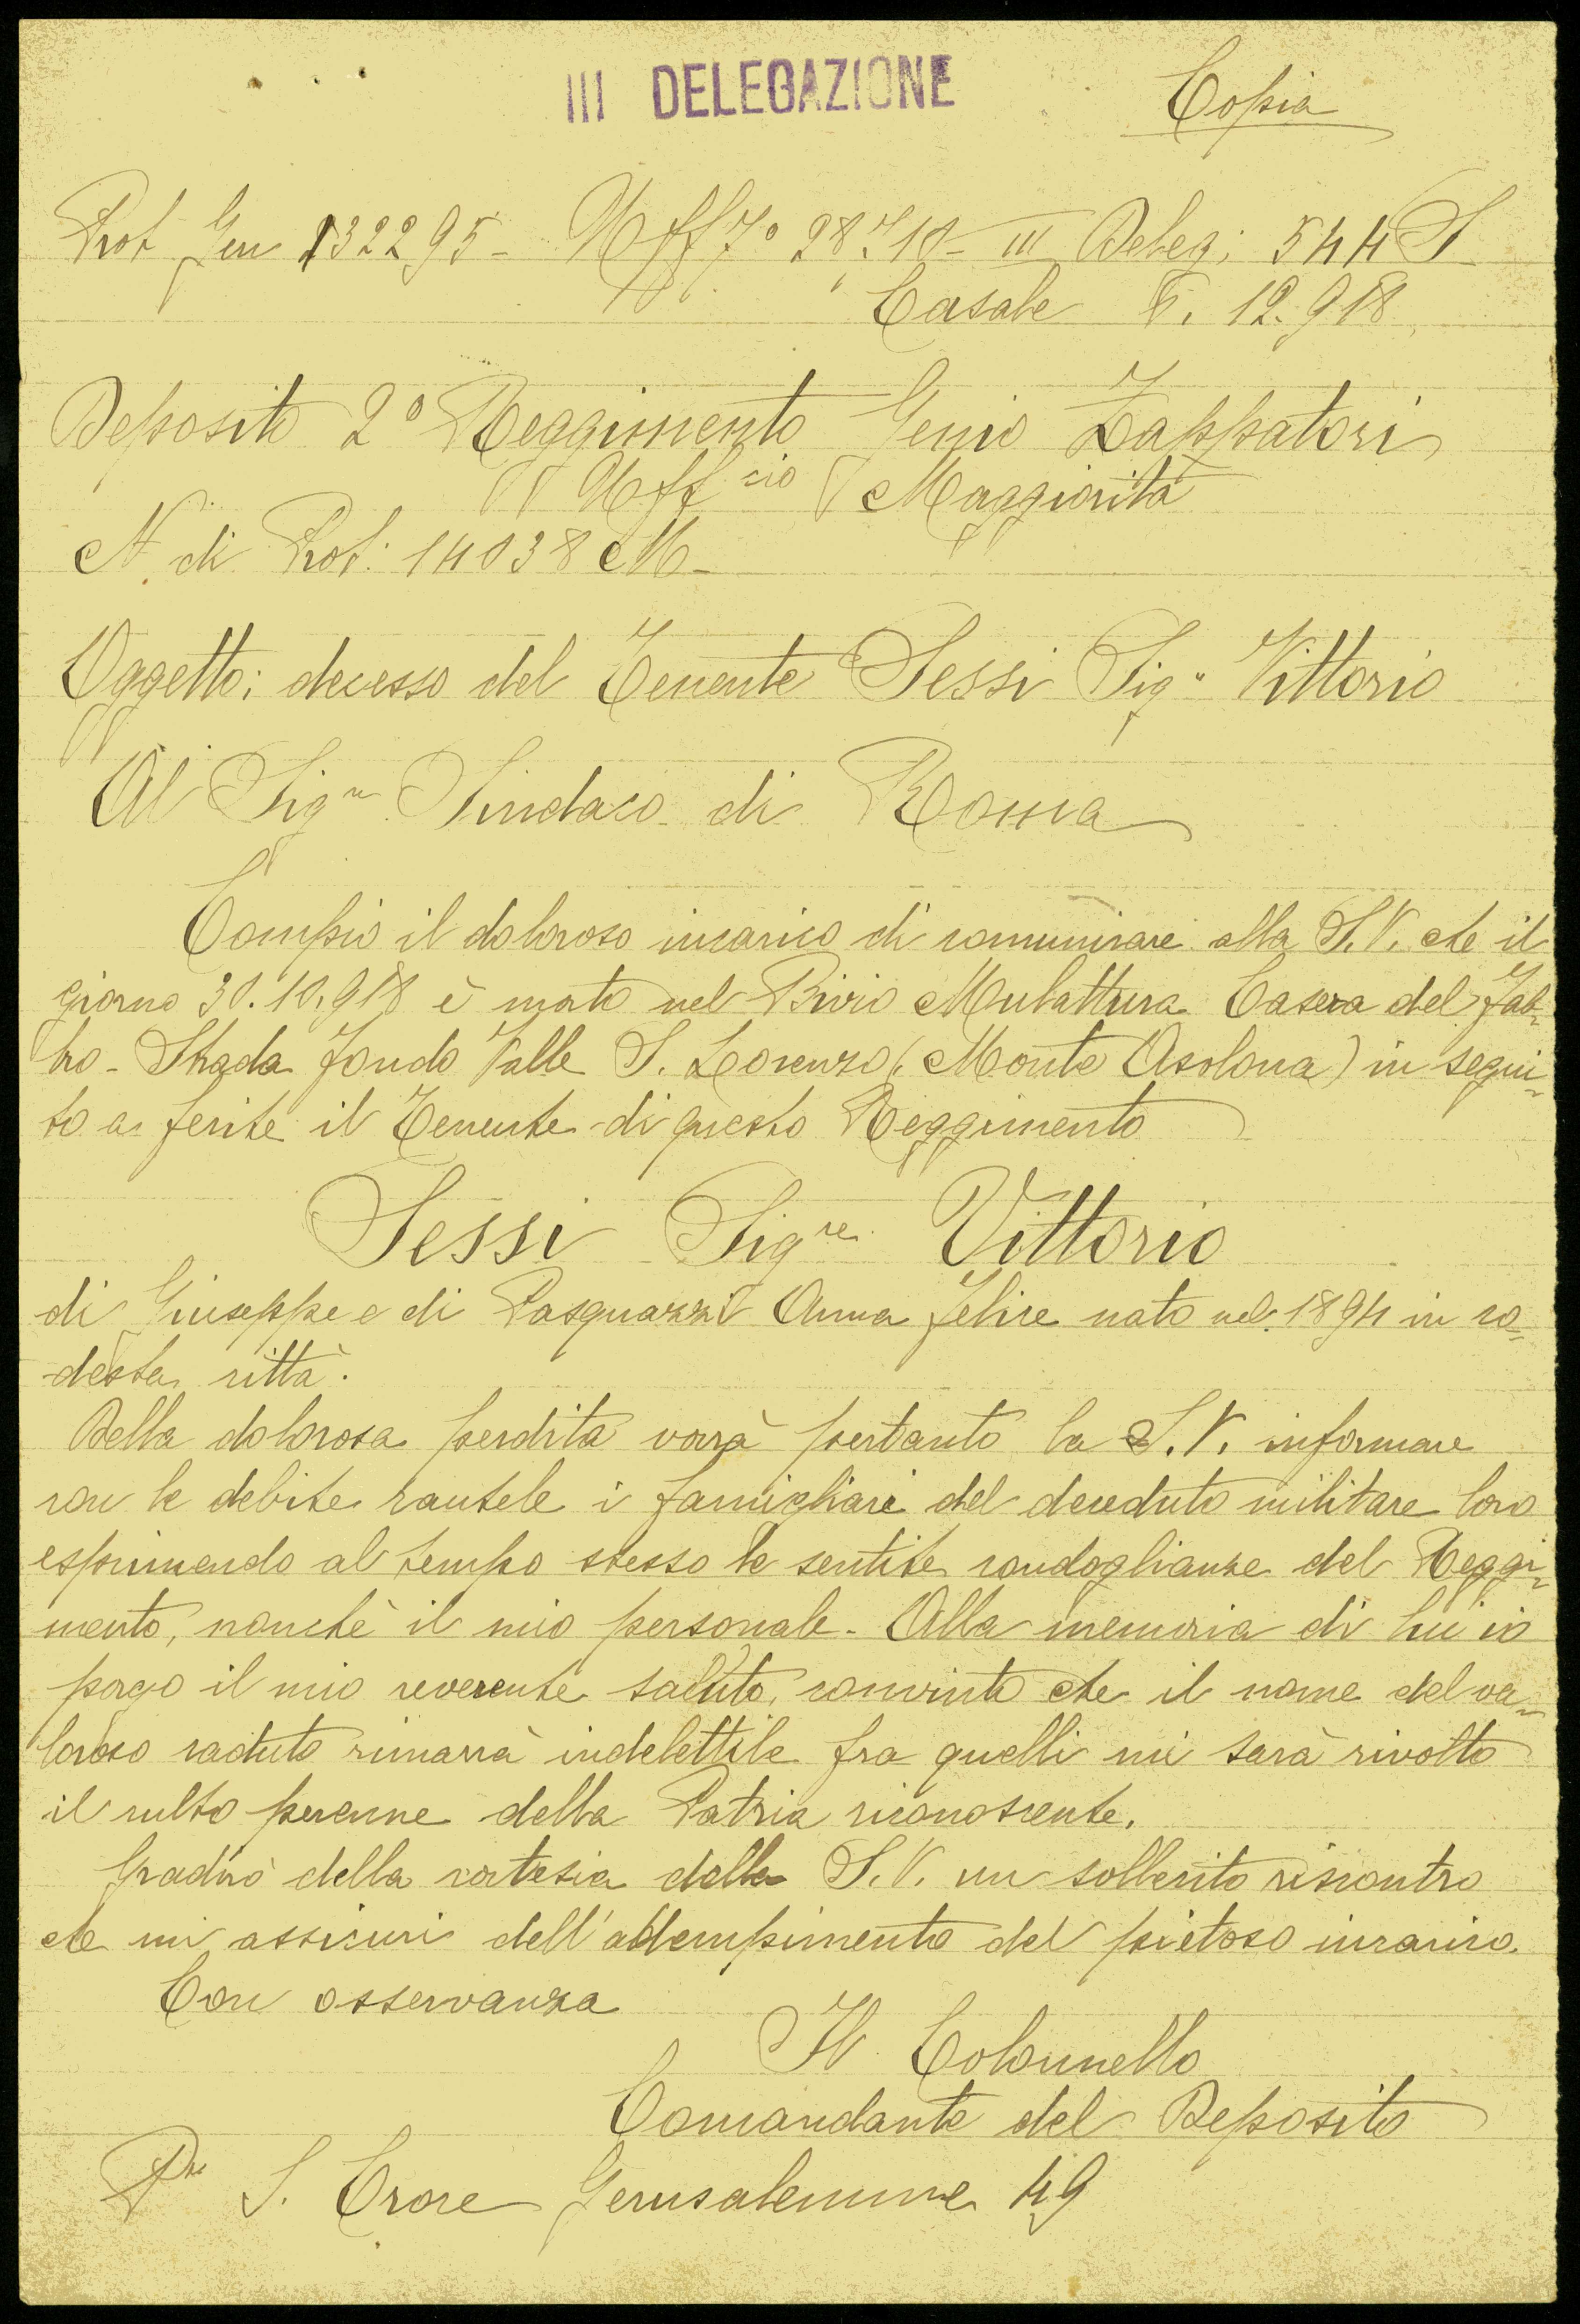 III DELEGAZIONE
Copia
Prot Gen 132295 - Uff 7° 28710 - III Deleg: 544 S
Casale 6. 12. 918
Deposito 2° Reggimento Genio Zappatori
Uff cio Maggiorità
N. di Prot: 14038 M -
Oggetto: decesso del Tenente Sessi Sig. Vittorio
Al Sigr Sindaco di Roma
Compio il doloroso incarico di comunicare alla S.V. che il
giorno 30.10.918 è morto nel Bivio Mulattiera Casera del Fab-
bro - Strada Fondo Valle S. Lorenzo (Monte Asolona) in segui-
to a ferite il Tenente di questo Reggimento
Sessi Sigre Vittorio
di Giuseppe e di Pasquazzi Anna Felice nato nel 1894 in co-
desta città.
Della dolorosa perdita vorrà pertanto la S.V. informare
con le debite cautele i famigliari del deceduto militare loro
esprimendo al tempo stesso le sentite condoglianze del Reggi-
mento, nonchè il mio personale. Alla memoria di lui io
porgo il mio reverente saluto, convinto che il nome del va-
loroso caduto rimarrà indelettile fra quelli cui sarà rivolto
il culto perenne della Patria riconoscente.
Gradirò della cortesia della S.V. un sollecito riscontro
che mi assicuri dell'addempimento del pietoso incarico.
Con osservanza
Il Colonnello
Comandante del Deposito
S. Croce Gerusalemme 49